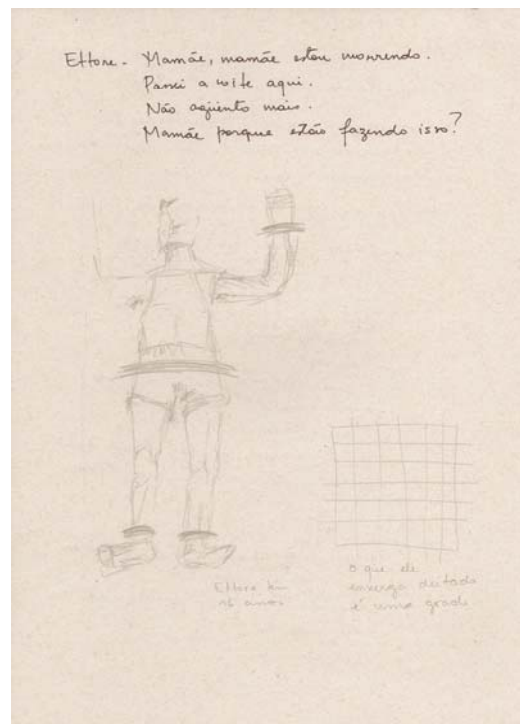 Ettore - Mamãe, mamãe estou morrendo.
Passei a noite aqui.
Não agüento mais.
Mamãe porque estão fazendo isso?
Ettore tem
16 anos
o que ele
enxerga deitado
é uma grade